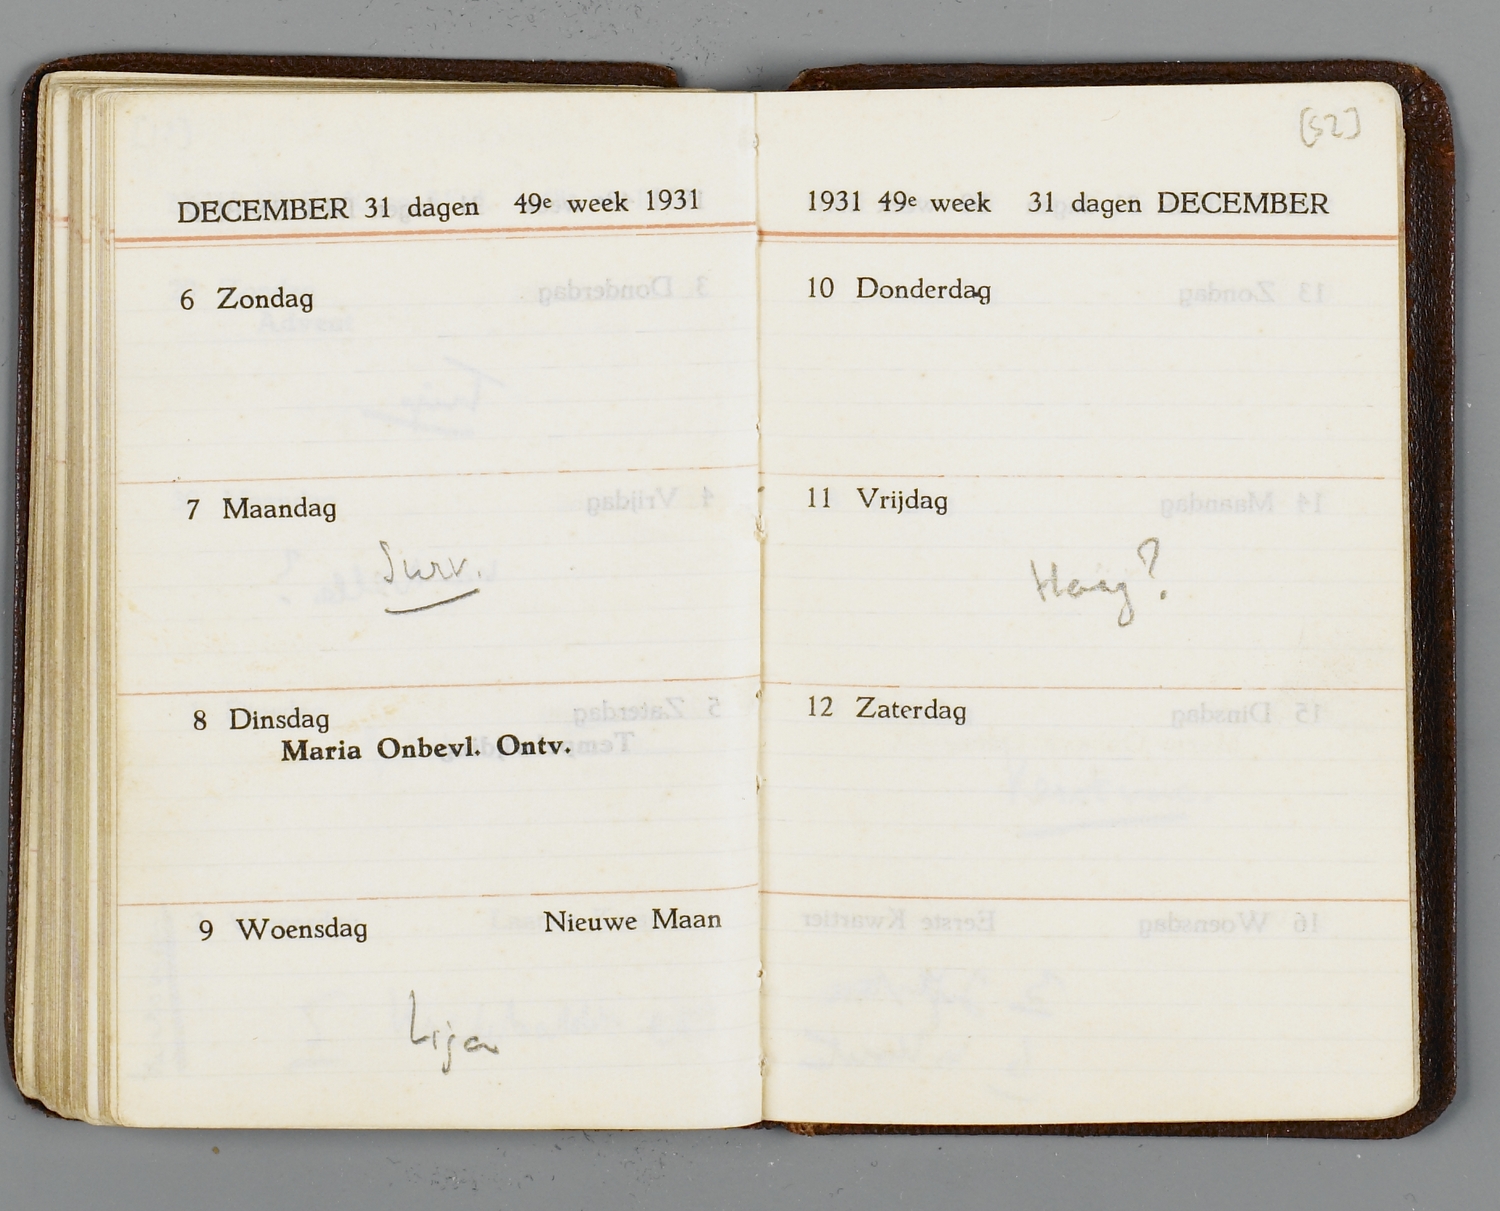 DECEMBER 31 dagen 49e week 1931
6 Zondag
7 Maandag
Surv.
8 Dinsdag
Maria Onbevl. Ontv.
9 Woensdag Nieuwe Maan
Liga
[52]
1931 49e week 31 dagen DECEMBER
10 Donderdag
11 Vrijdag
Haag?
12 Zaterdag